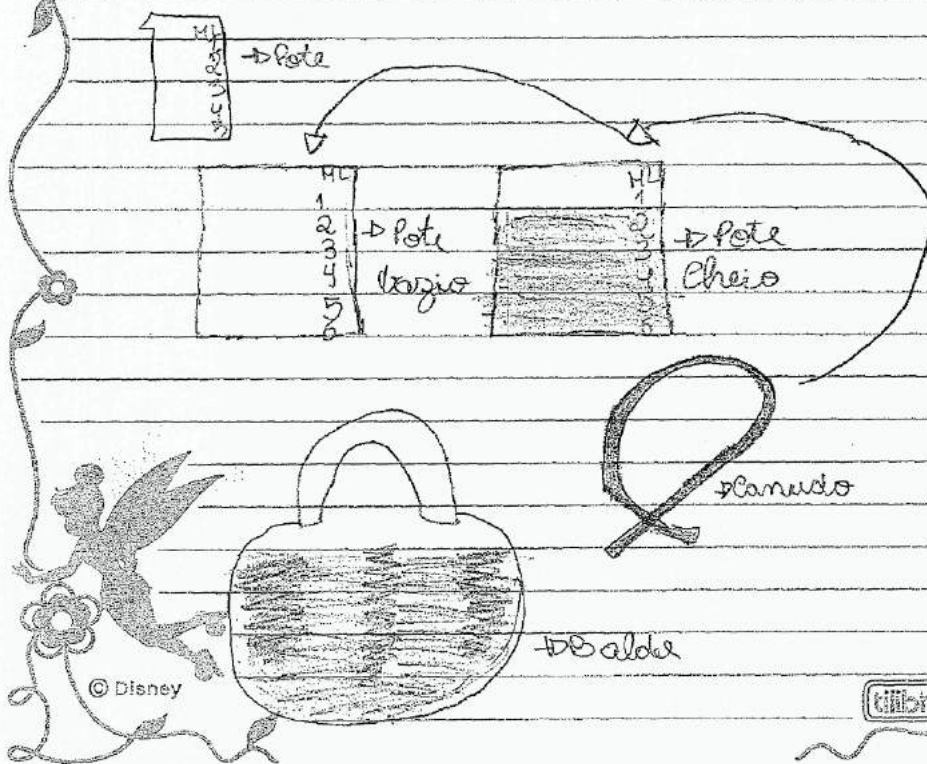 ML
→ Pote
ML
1
2
3
4
5
6
→ Pote
Vazio
ML
1
2
3
→ Pote
Cheio
→ Canudo
→ Balde
© Disney
tilibr